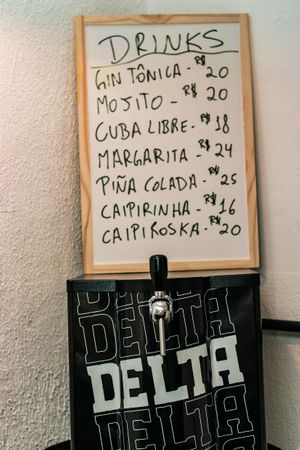 DRINKS
GIN TÔNICA - R$ 20
MOJITO - R$ 20
CUBA LIBRE - R$ 18
MARGARITA - R$ 24
PIÑA COLADA - R$ 25
CAIPIRINHA - R$ 16
CAIPIROSKA - R$ 20
DELTA
DELTA
DELTA
DELTA
DELTA